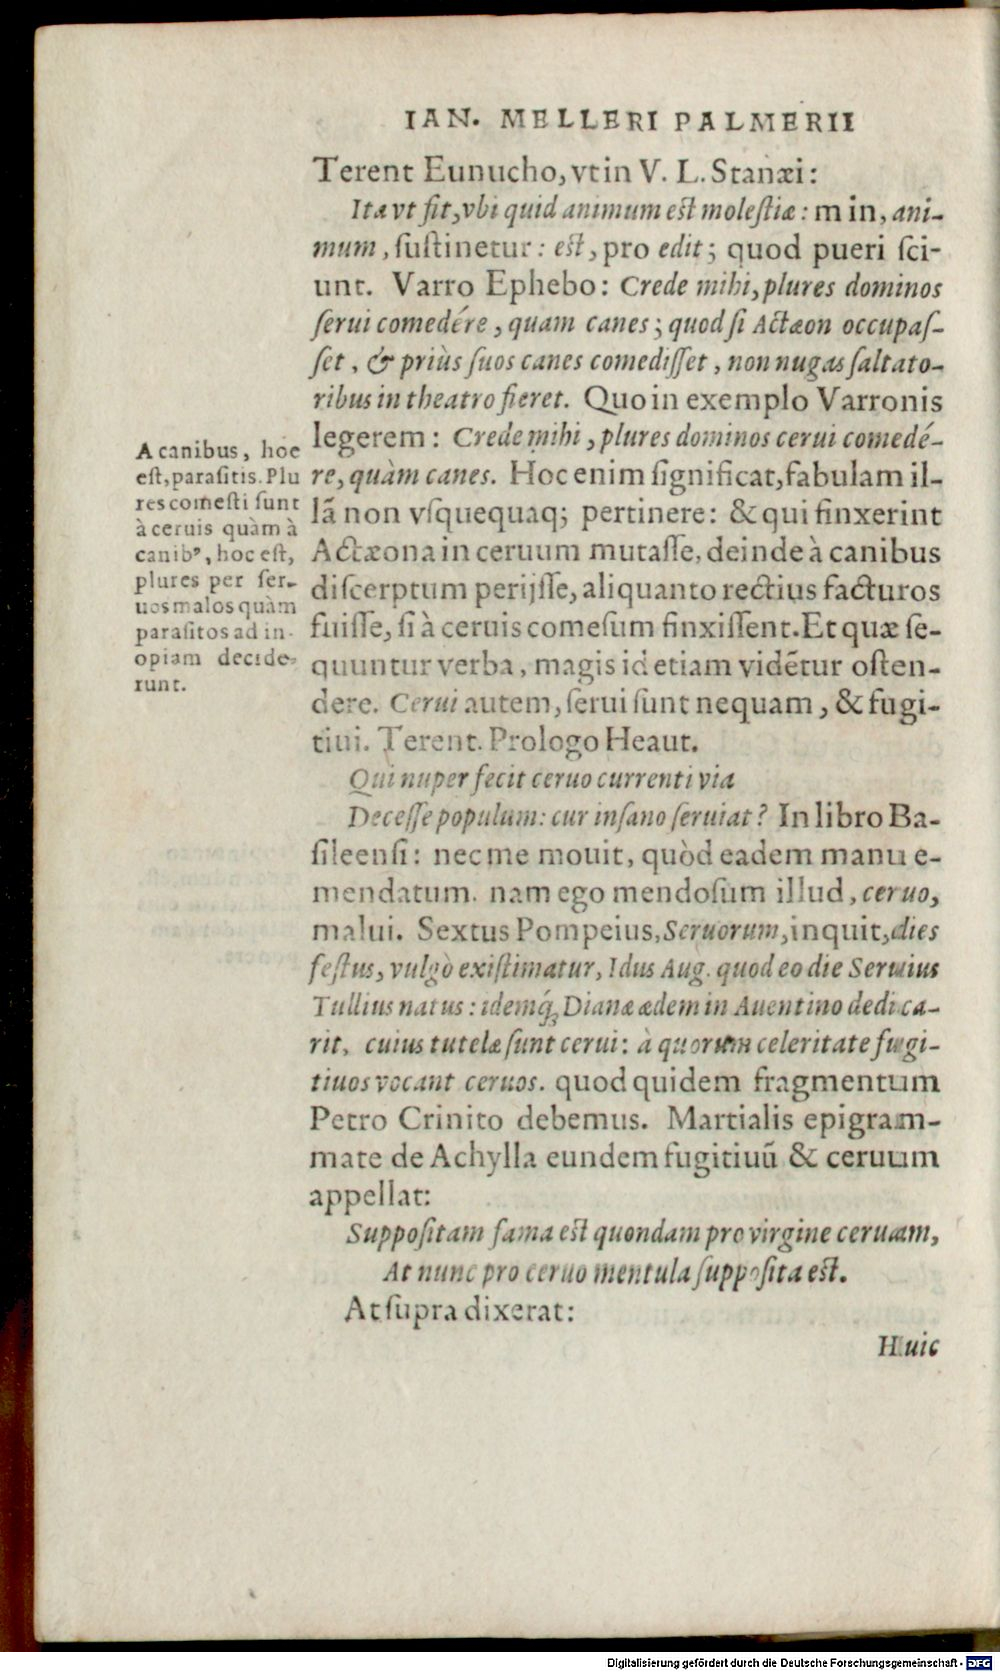 IAN. MELLERI PALMERII
Terent Eunucho, vt in V. L. Stanæi:
Ita vt fit, vbi quid animum est molestiæ: m in, ani-
mum, sustinetur: est, pro edit; quod pueri sci-
unt. Varro Ephebo: Crede mihi, plures dominos
serui comedére, quam canes; quod si Actæon occupas-
set, & priùs suos canes comedisset, non nugas saltato-
ribus in theatro fieret. Quo in exemplo Varronis
legerem: Crede mihi, plures dominos cerui comedé-
re, quàm canes. Hoc enim significat, fabulam il-
lā non vsquequaq; pertinere: & qui finxerint
Actæona in ceruum mutasse, deinde à canibus
discerptum perijsse, aliquanto rectius facturos
fuisse, si à ceruis comesum finxissent. Et quæ se-
quuntur verba, magis id etiam vidētur osten-
dere. Cerui autem, serui sunt nequam, & fugi-
tiui. Terent. Prologo Heaut.
Qui nuper fecit ceruo currenti via
Decesse populum: cur insano seruiat? In libro Ba-
sileensi: nec me mouit, quòd eadem manu e-
mendatum. nam ego mendosum illud, ceruo,
malui. Sextus Pompeius, Seruorum, inquit, dies
festus, vulgò existimatur, Idus Aug. quod eo die Seruius
Tullius natus: idemq́; Dianæ ædem in Auentino dedica-
rit, cuius tutelæ sunt cerui: à quorum celeritate fugi-
tiuos vocant ceruos. quod quidem fragmentum
Petro Crinito debemus. Martialis epigram-
mate de Achylla eundem fugitiuū & ceruum
appellat:
Suppositam fama est quondam pro virgine ceruam,
At nunc pro ceruo mentula supposita est.
At supra dixerat:
Huic
A canibus, hoc
est, parasitis. Plu
res comesti sunt
à ceruis quàm à
canibꝰ, hoc est,
plures per ser-
uos malos quàm
parasitos ad in-
opiam decide-
runt.
Digitalisierung gefördert durch die Deutsche Forschungsgemeinschaft - DFG